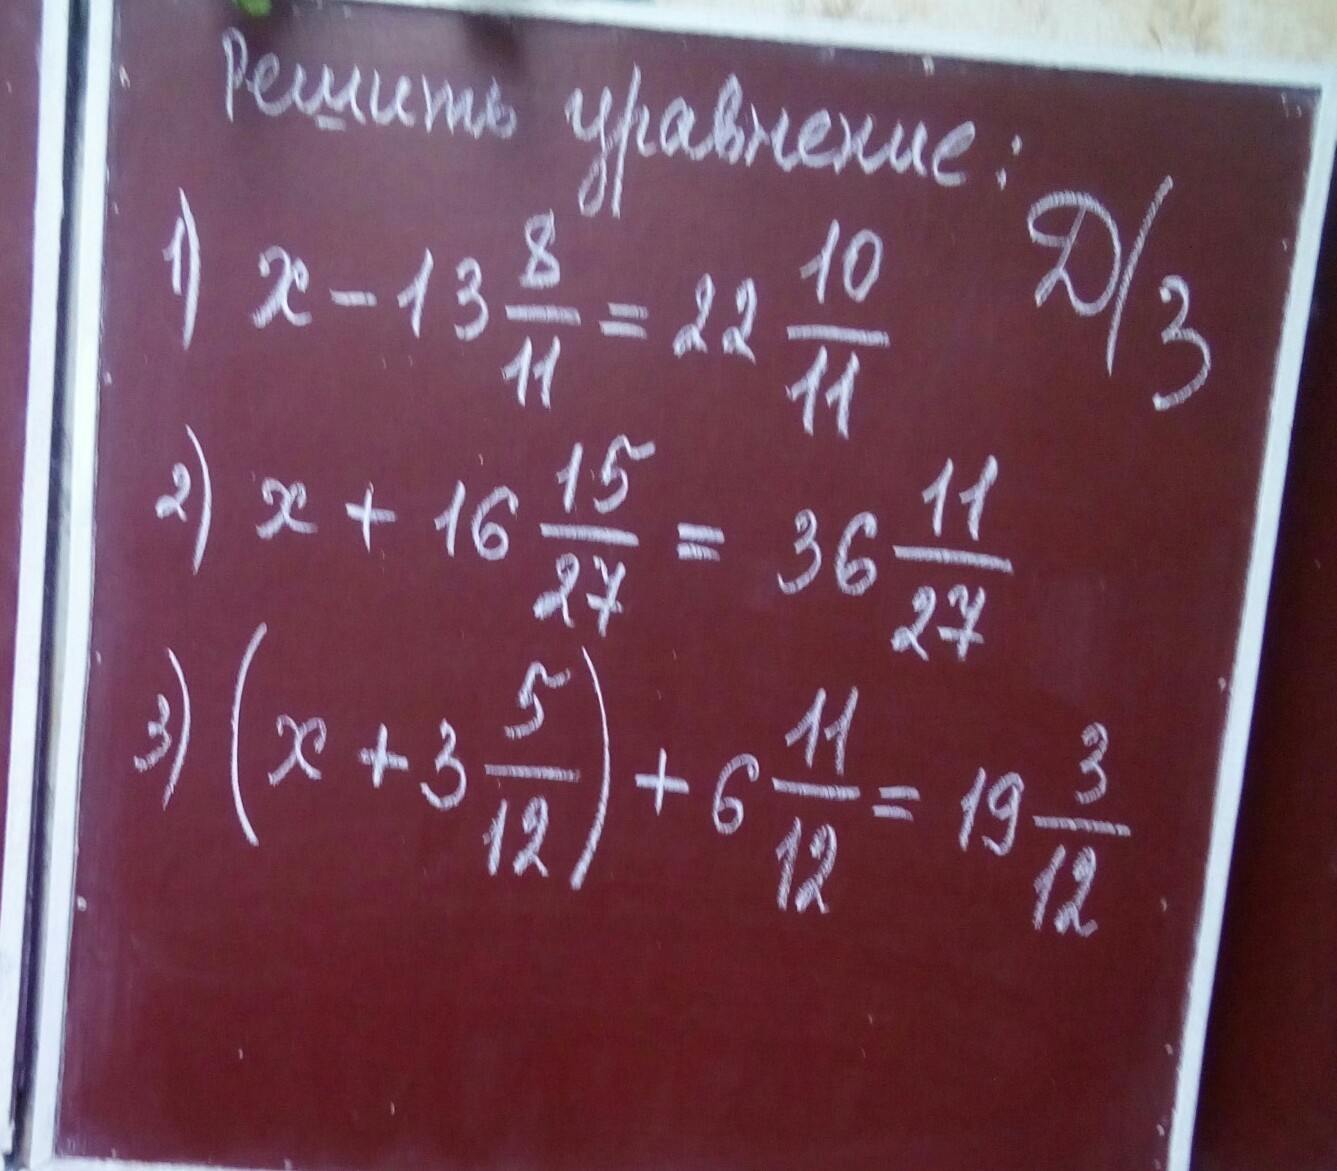 Решить уравнение:
Д/З
1) x - 13 8/11 = 22 10/11
2) x + 16 15/27 = 36 11/27
3) (x + 3 5/12) + 6 11/12 = 19 3/12